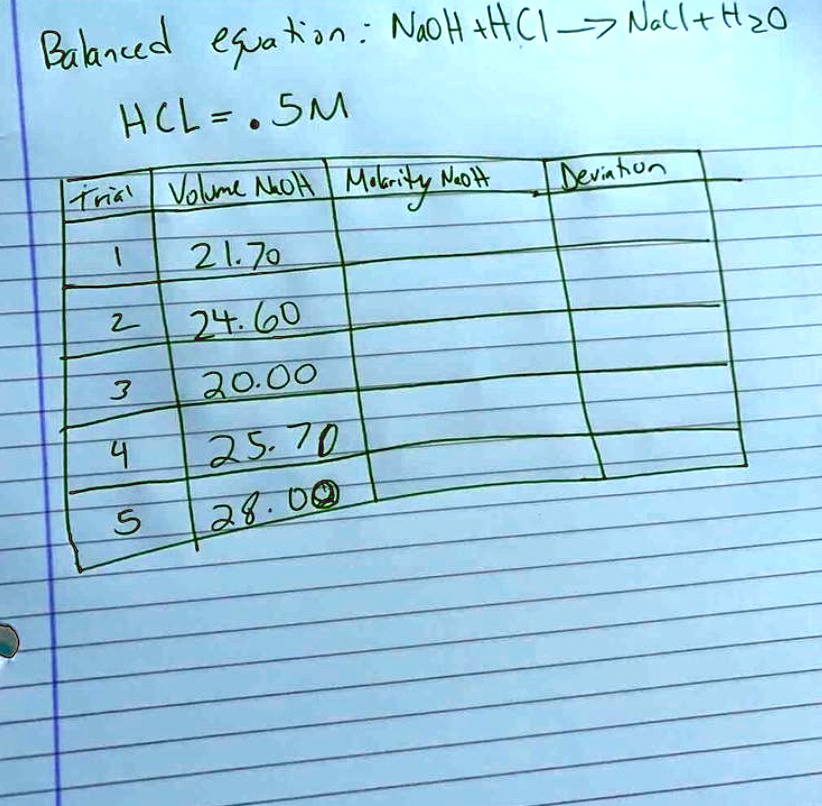 Balanced equation: NaOH + HCl → NaCl + H2O
HCL = .5M
Trial Volume NaOH Molarity NaOH Deviation
1 21.70
2 24.60
3 20.00
4 25.70
5 28.00